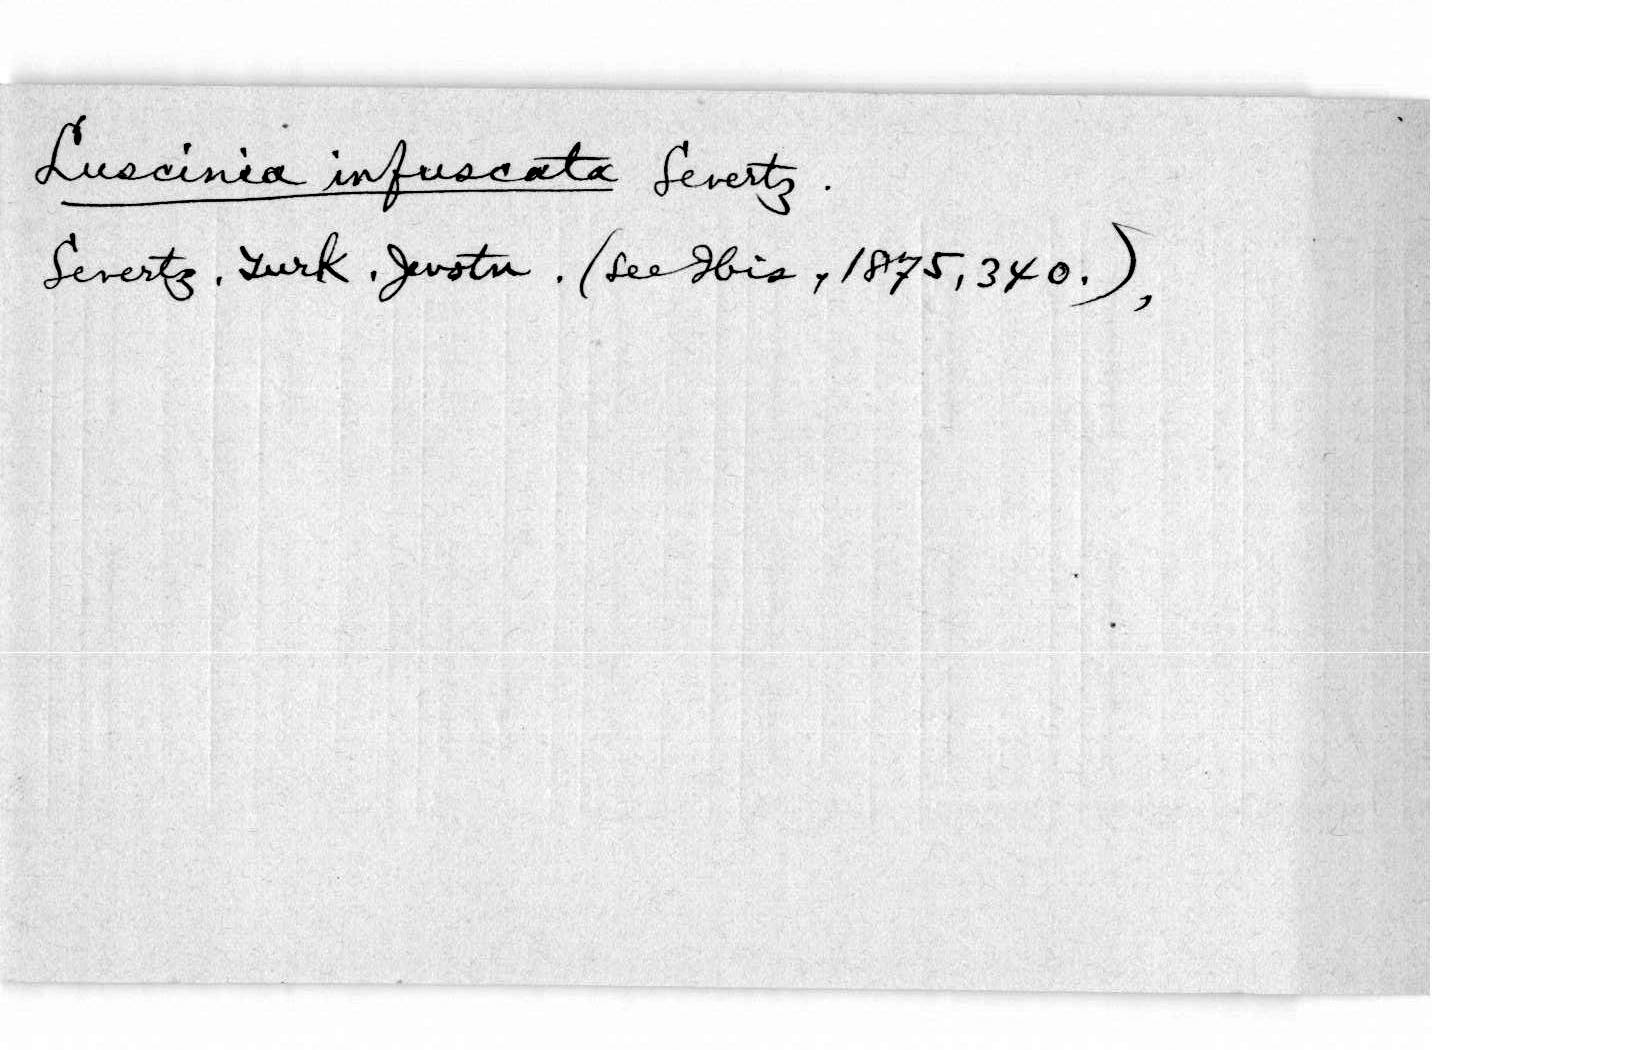 Luscinia infuscata Severtz.
Severtz. Turk. Jevotn. (see Ibis, 1875, 340.),